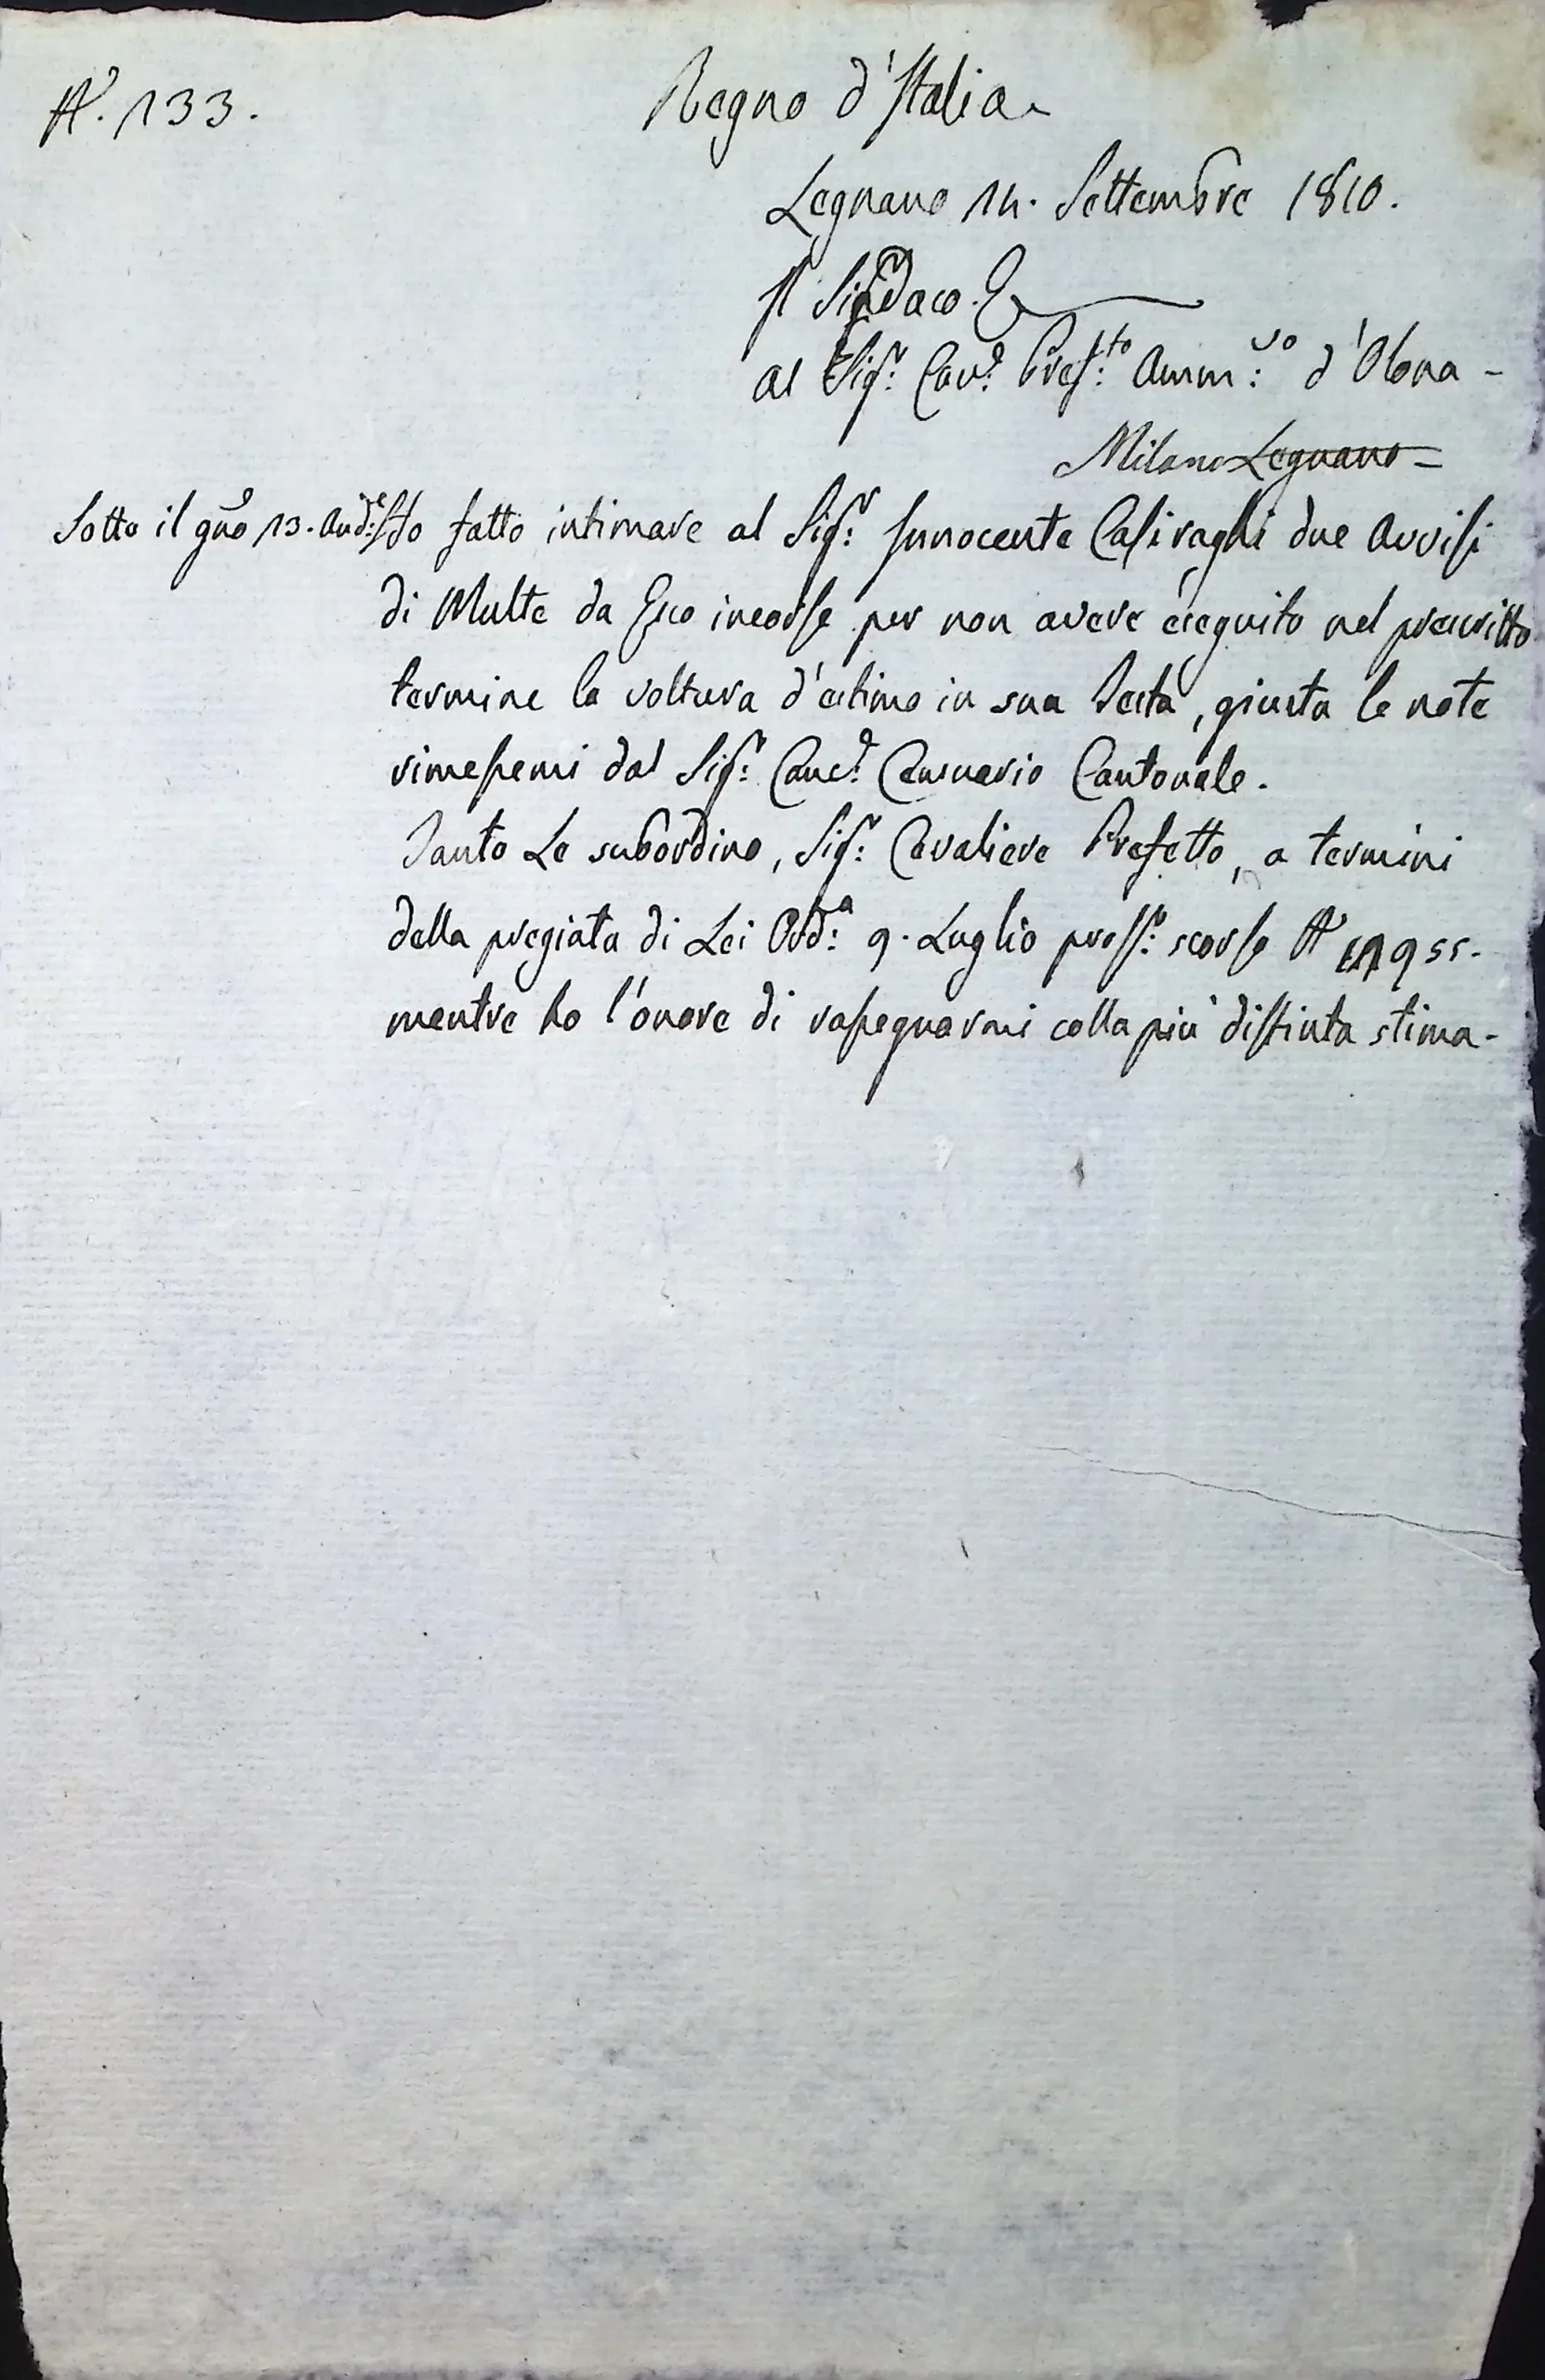 N.° 133.
Regno d'Italia.
Legnano 14. Settembre 1810.
Il Sindaco
Al Sig.r Cav.e Pref.to Amm.vo d'Olona -
Milano Legnano =
Sotto il gño 13. And.e Ho fatto intimare al Sig.r Innocente Casiraghi due Avvisi
di Multe da Esso incorse per non avere eseguito nel prescritto
termine la voltura d'estimo in sua Testa, giusta le note
rimessemi dal Sig.r Canc.e Censuario Cantonale.
Tanto Le subordino, Sig.r Cavaliere Prefetto, a termini
della pregiata di Lei Ord.a 9. Luglio pross.o scorso N.°
mentre ho l'onore di rassegnarmi colla più distinta stima -